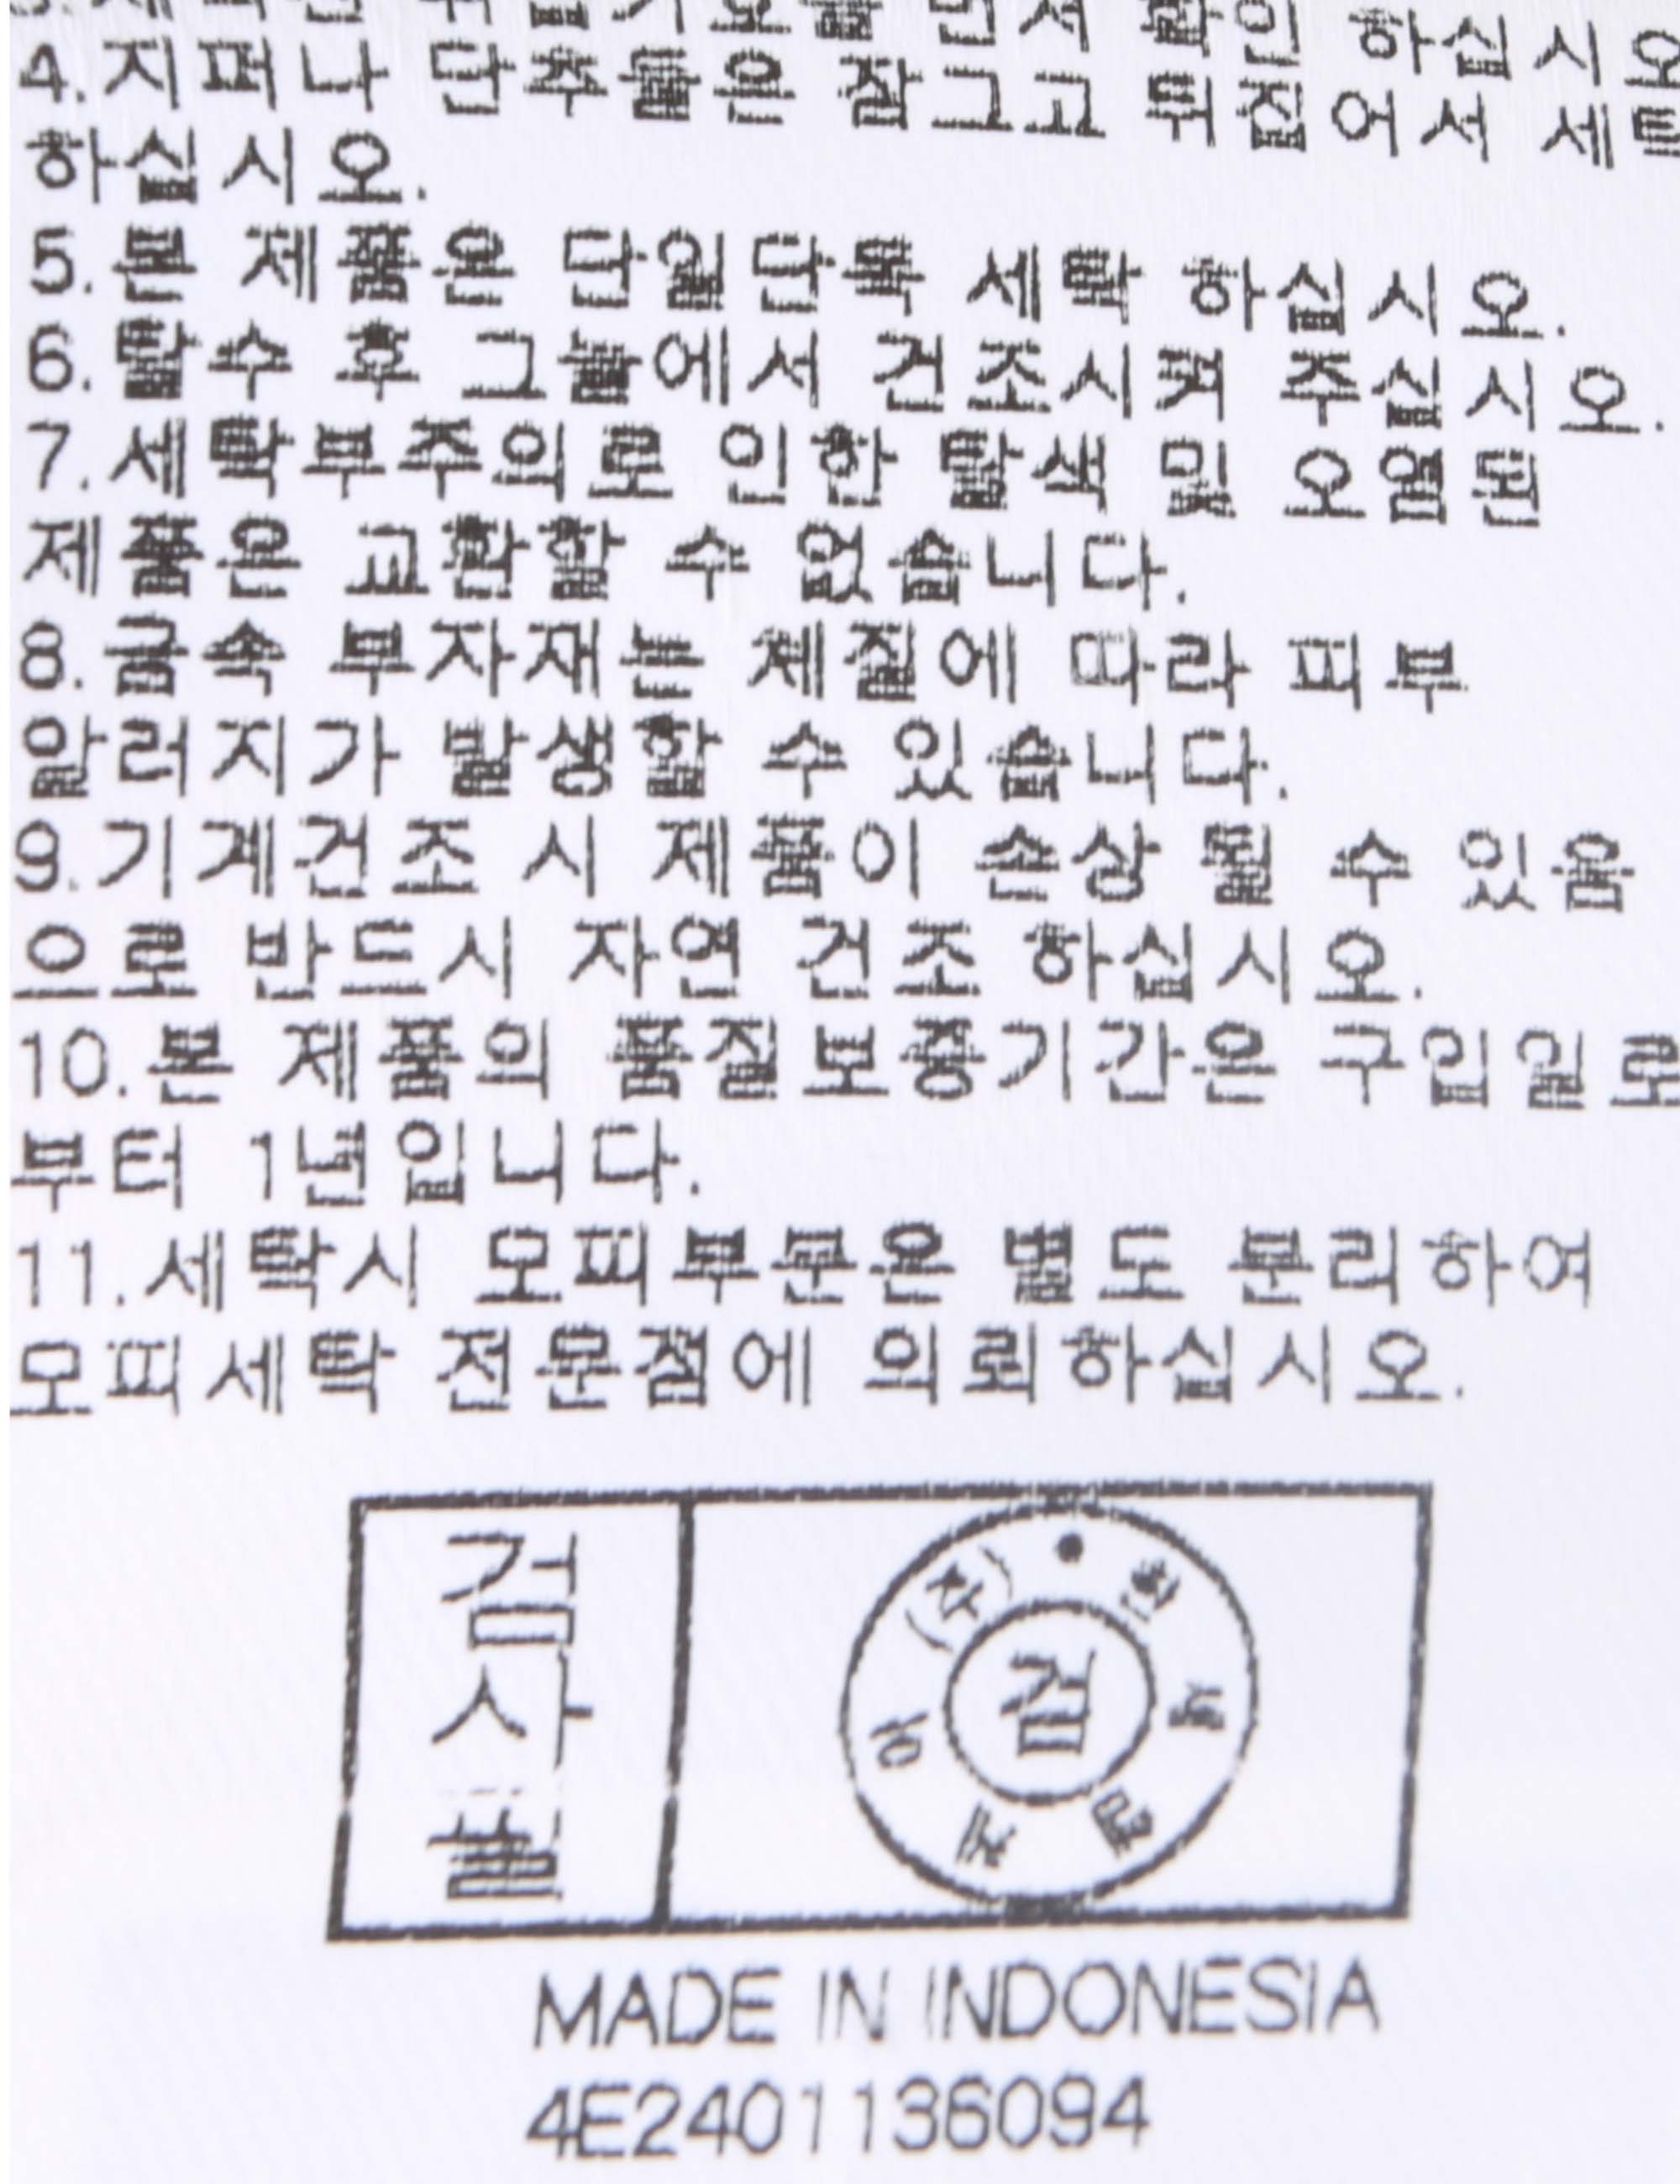 하십시오
4.지퍼나 단추들은 잠그고 뒤집어서 세탁
하십시오.
5.본 제품은 단일단독 세탁 하십시오.
6.탈수 후 그늘에서 건조시켜 주십시오.
7.세탁부주의로 인한 탈색 및 오염된
제품은 교환할 수 없습니다.
8.금속 부자재는 체질에 따라 피부
알러지가 발생할 수 있습니다.
9.기계건조 시 제품이 손상 될 수 있음
으로 반드시 자연 건조 하십시오.
10.본 제품의 품질보증기간은 구입일로
부터 1년입니다.
11.세탁시 모피부분은 별도 분리하여
모피세탁 전문점에 의뢰하십시오.
검사필
(주)
검
MADE IN INDONESIA
4E2401136094